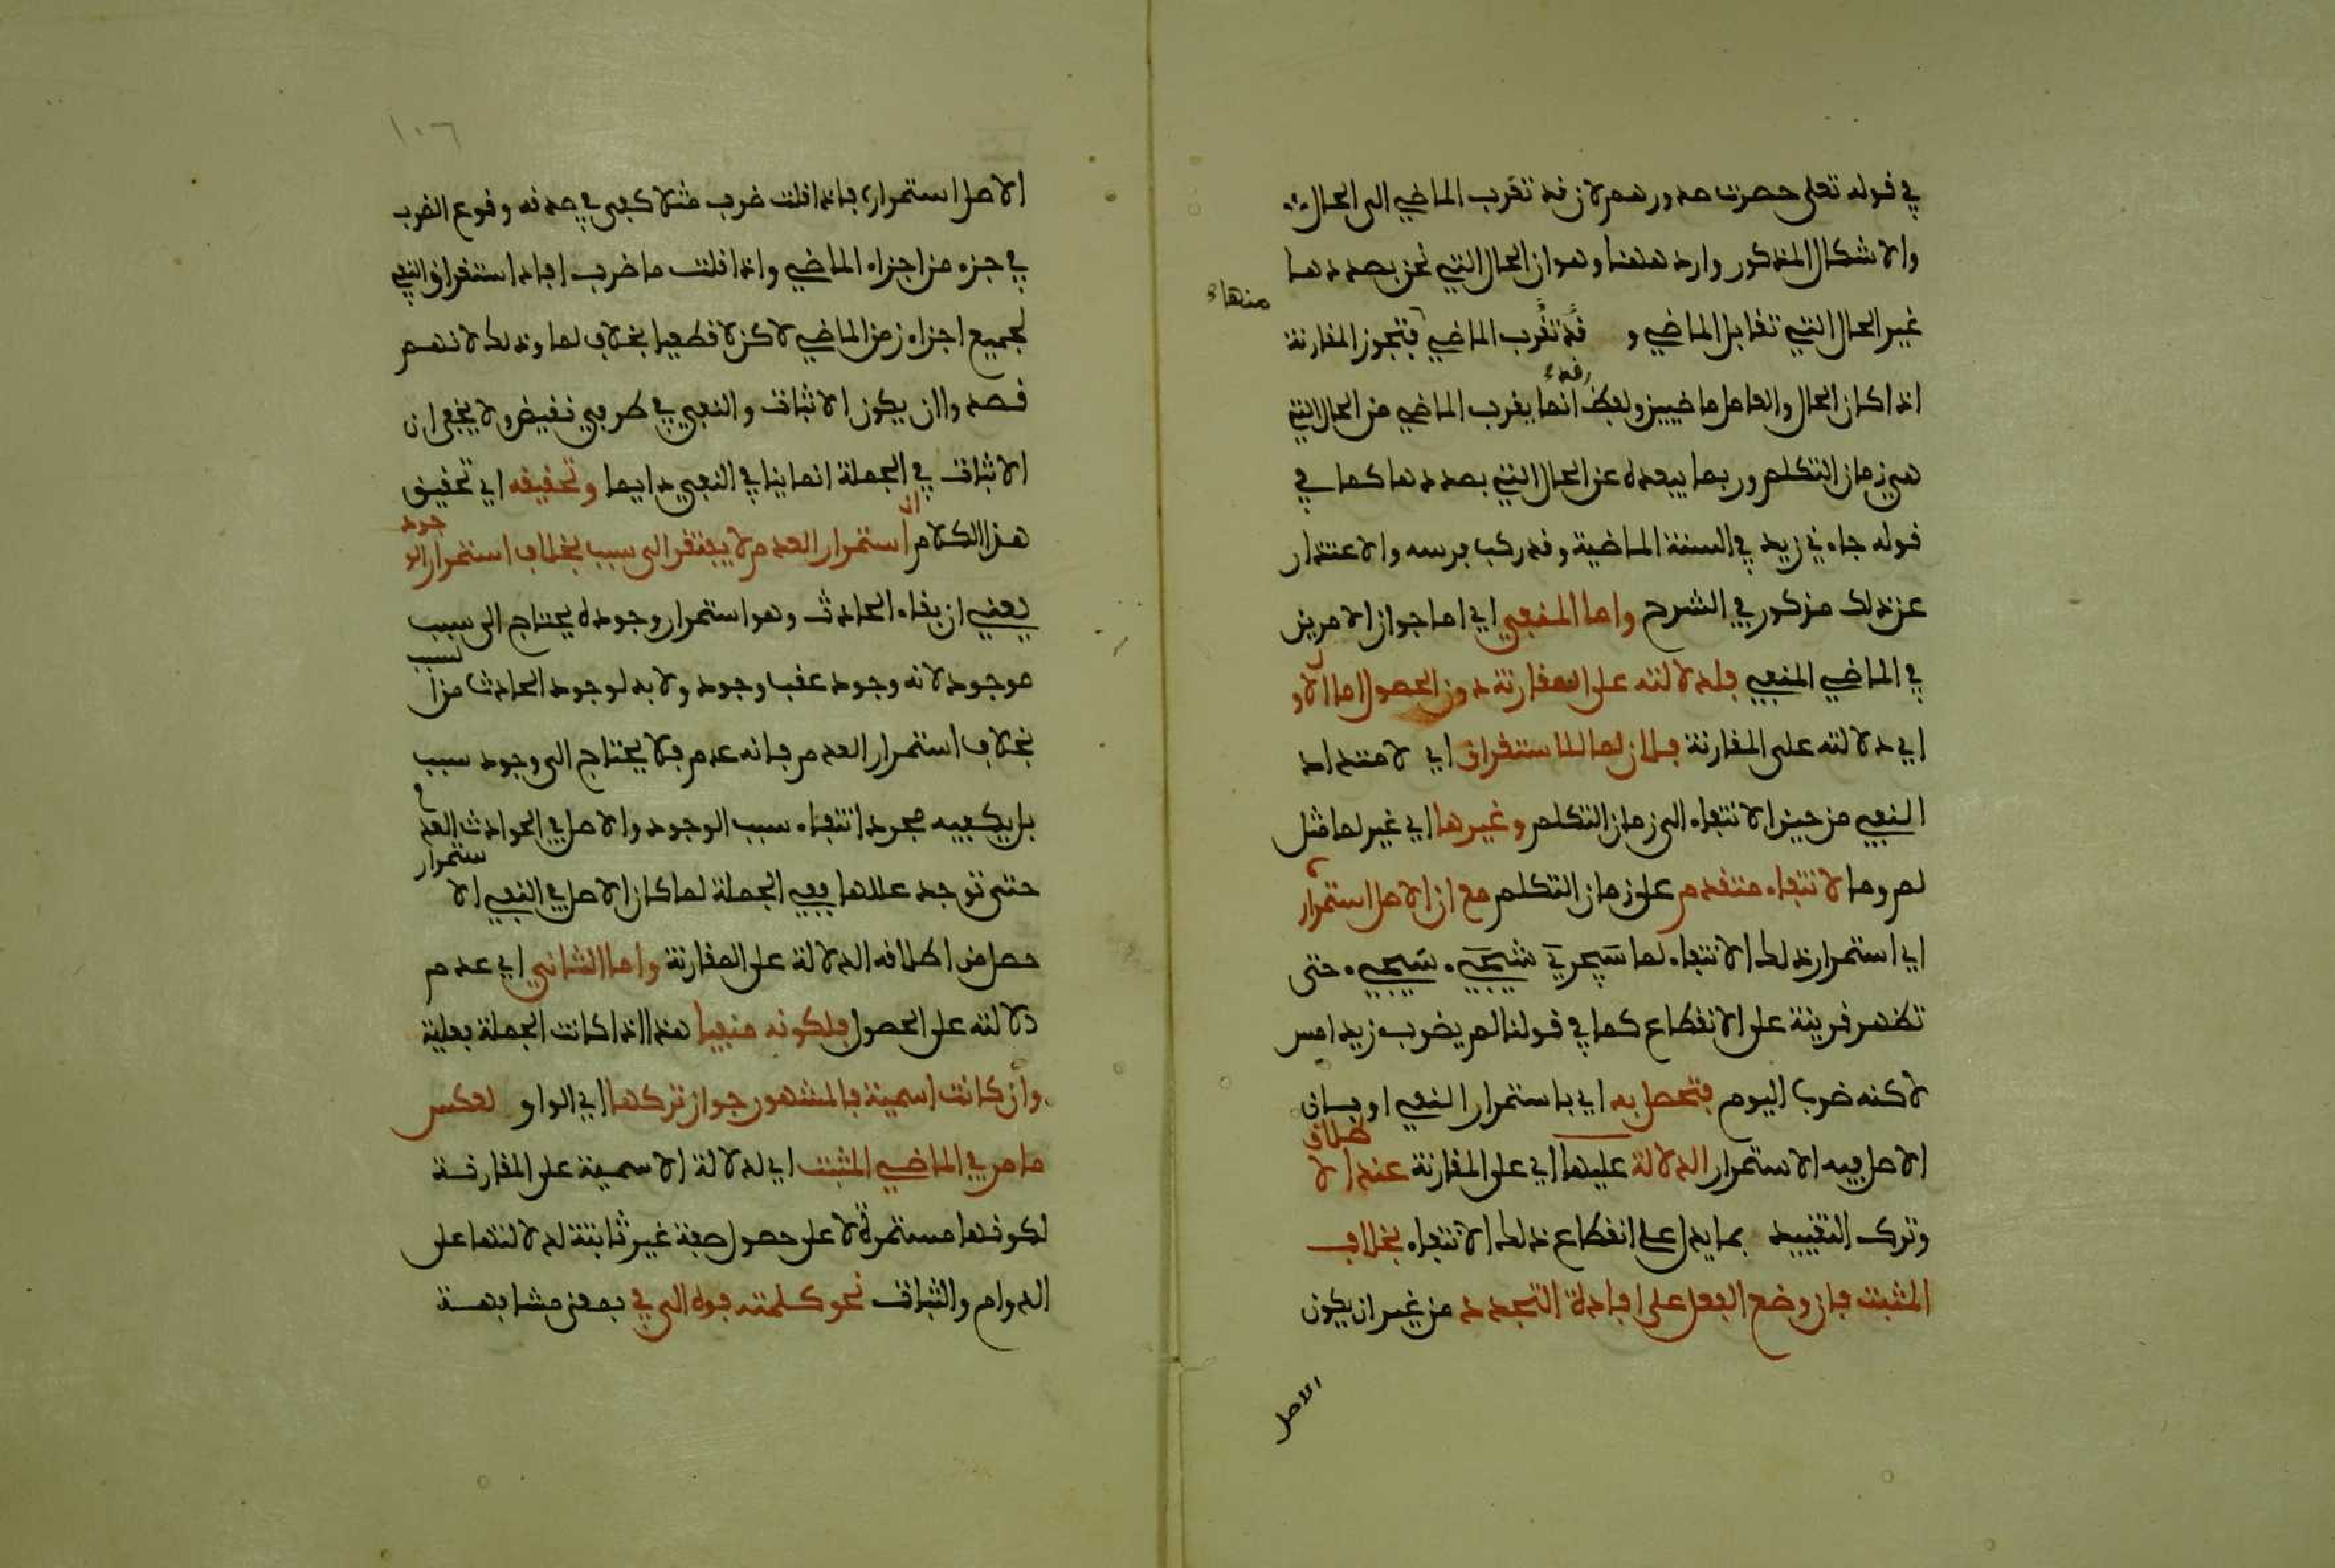 في قوله تعلى حصرت صدورهم لان قد تقرب الماضي الى الحال
والاشكال المذكور وارد ههنا وهو ان الحال التي نحن بصددها
منهاء
غير الحال التي تقابل الماضي و قد تقرب الماضي فتجوز المقارنة
اذا كان الحال والعامل ماضيين ولفظ قد انما يقرب الماضي من الحال التي
هي زمان التكلم وربما يبعده عن الحال التي بصددها كما في
قوله جاءني زيد في السنة الماضية وقد ركب فرسه والاعتذار
عن ذلك مذكور في الشرح واما المنفي اي اما جواز الامرين
في الماضي المنفي فلدلالته على المقارنة دون الحصول اما الاول
اي دلالته على المقارنة فلان لما للاستغراق اي لامتداد
النفي من حين الانتفاء الى زمان التكلم وغيرها اي غير لما مثل
لم وما لانتفاء متقدم على زمان التكلم مع ان الاصل استمراره
اي استمرار ذلك الانتفاء لما سيجيء حتى
تظهر قرينة على الانقطاع كما في قولنا لم يضرب زيد امس
لاكنه ضرب اليوم فتحصل به اي باستمرار النفي او بان
الاصل فيه الاستمرار الدلالة عليها اي على المقارنة عند الاطلاق
وترك التقييد بما يدل على انقطاع ذلك الانتفاء بخلاف
المثبت فان وضع الفعل على افادة التجدد من غير ان يكون
الاصل
١٠٦
الاصل استمراره فاذا قلت ضرب مثلا كفى في صدقه وقوع الضرب
في جزء من اجزاء الماضي واذا قلت ما ضرب افاد استغراق النفي
لجميع اجزاء زمن الماضي لاكن لا قطعيا بخلاف لما وذلك لانهم
قصدوا ان يكون الاثبات والنفي في طرفي نقيض ولا يخفى ان
الاثبات في الجملة انما ينافي النفي دايما وتحقيقه اي تحقيق
هذا الكلام ان استمرار العدم لا يفتقر الى سبب بخلاف استمرار الوجود
يعني ان بقاء الحادث وهو استمرار وجوده يحتاج الى سبب
موجود لانه وجود عقب وجود ولا بد لوجود الحادث من السبب
بخلاف استمرار العدم فانه عدم فلا يحتاج الى وجود سبب
بل يكفيه مجرد انتفاء سبب الوجود والاصل في الحوادث العدم
حتى توجد عللها ففي الجملة لما كان الاصل في النفي الاستمرار
حصل من اطلاقه الدلالة على المقارنة واما الثاني اي عدم
دلالته على الحصول فلكونه منفيا هذا اذا كانت الجملة فعلية
وان كانت اسمية فالمشهور جواز تركها اي الواو لعكس
ما مر في الماضي المثبت اي لدلالة الاسمية على المقارنة
لكونها مستمرة لا على حصول صفة غير ثابتة لدلالتها على
الدوام والثبات نحو كلمته فوه الى في بمعنى مشابهة